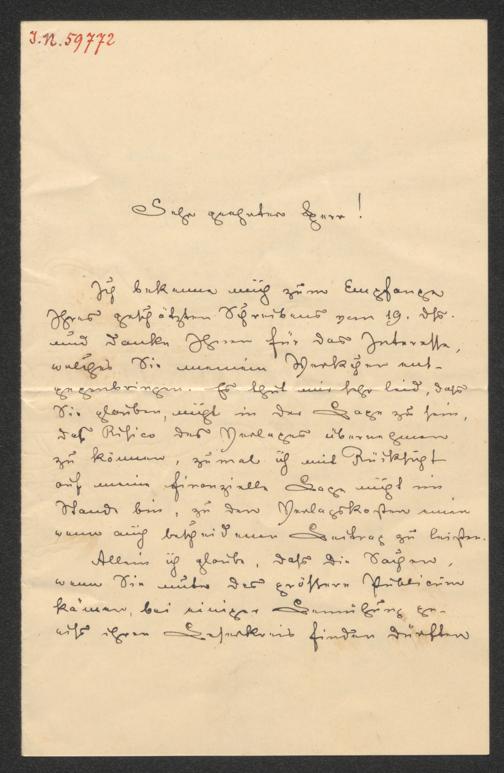 I.N. 59772
Sehr geehrter Herr!
Ich bekenne mich zum Empfange
Ihres geschätzten Schreibens vom 19. ds.
und danke Ihnen für das Interesse,
welches Sie meinem Werkchen ent-
gegenbringen. Es thut mir sehr leid, dass
Sie glauben, nicht in der Lage zu sein,
das Risico des Verlages übernehmen
zu können, zumal ich mit Rücksicht
auf meine finanzielle Lage nicht im
Stande bin, zu den Verlagskosten einen
wenn auch bescheidenen Beitrag zu leisten.
Allein ich glaube, dass die Sachen,
wenn Sie unter das größere Publicum
kämen, bei einiger Bemühung ge-
wiss ihren Leserkreis finden dürften